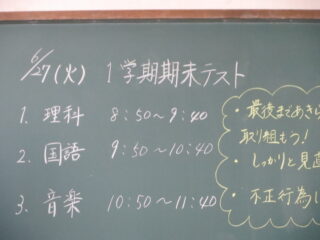 6/27(火) 1学期期末テスト
1. 理科 8:50〜9:40
2. 国語 9:50〜10:40
3. 音楽 10:50〜11:40
・最後まであきら
取り組もう!
・しっかりと見直
・不正行為